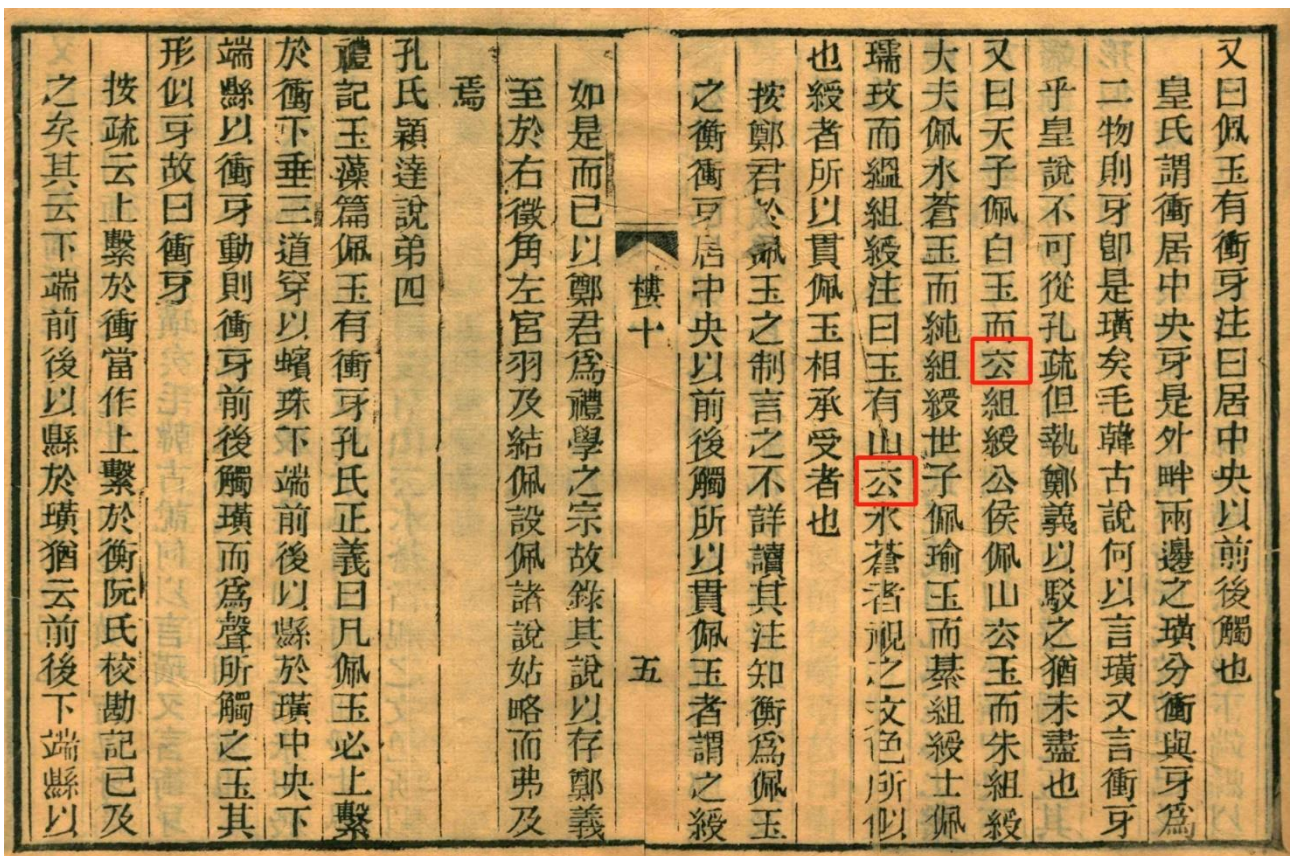 又曰佩玉有衝牙注曰居中央以前後觸也
皇氏謂衝居中央牙是外畔兩邊之璜分衝與牙爲
二物則牙卽是璜矣毛韓古說何以言璜又言衝牙
乎皇說不可從孔疏但執鄭義以駁之猶未盡也
又曰天子佩白玉而玄組綬公侯佩山玄玉而朱組綬
大夫佩水蒼玉而純組綬世子佩瑜玉而綦組綬士佩
瓀玟而縕組綬注曰玉有山玄水蒼者視之文色所似
也綬者所以貫佩玉相承受者也
按鄭君於佩玉之制言之不詳讀其注知衡爲佩玉
之衡衝牙居中央以前後觸所以貫佩玉者謂之綬
樓十
五
如是而已以鄭君爲禮學之宗故錄其說以存鄭義
至於右徵角左宮羽及結佩設佩諸說姑略而弗及
焉
孔氏穎達說弟四
禮記玉藻篇佩玉有衝牙孔氏正義曰凡佩玉必上繫
於衡下垂三道穿以蠙珠下端前後以縣於璜中央下
端縣以衝牙動則衝牙前後觸璜而爲聲所觸之玉其
形似牙故曰衝牙
按疏云上繫於衝當作上繫於衡阮氏校勘記已及
之矣其云下端前後以縣於璜猶云前後下端縣以